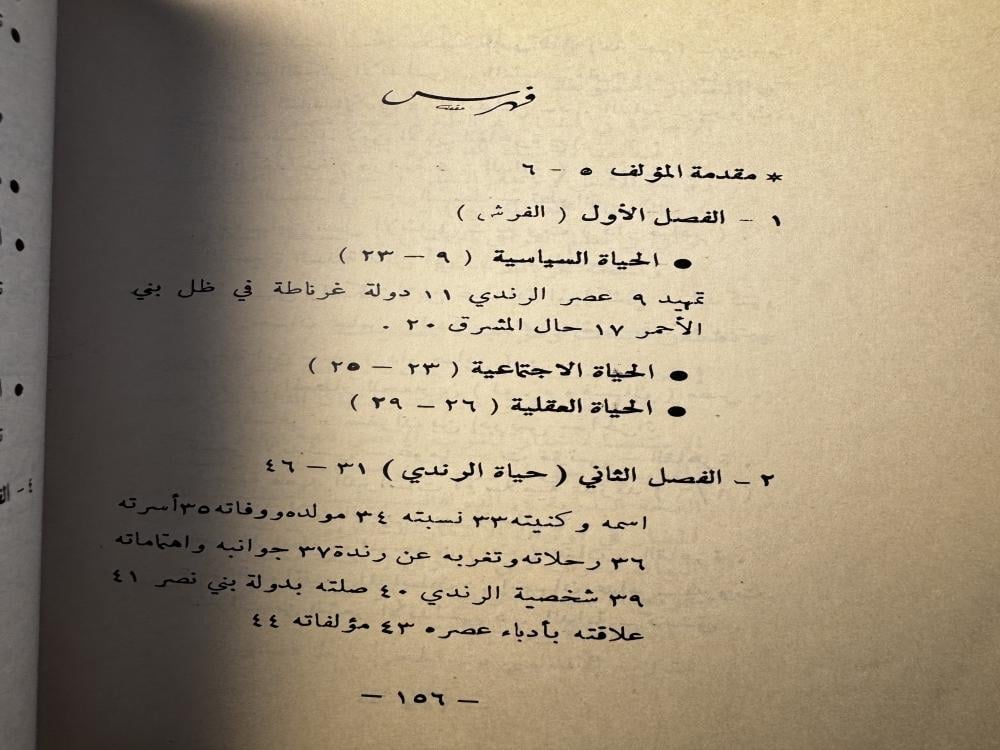 فهرس
* مقدمة المؤلف ٥ - ٦
١ - الفصل الأول ( الفرش )
● الحياة السياسية ( ٩ - ٢٣ )
تمهيد ٩ عصر الرندي ١١ دولة غرناطة في ظل بني
الأحمر ١٧ حال المشرق ٢٠ .
● الحياة الاجتماعية ( ٢٣ - ٢٥ )
● الحياة العقلية ( ٢٦ - ٢٩ )
٢ - الفصل الثاني ( حياة الرندي ) ٣١ - ٤٦
اسمه وكنيته ٣٣ نسبته ٣٤ مولده ووفاته ٣٥ أسرته
٣٦ رحلاته وتغربه عن رندة ٣٧ جوانبه واهتماماته
٣٩ شخصية الرندي ٤٠ صلته بدولة بني نصر ٤١
علاقته بأدباء عصره ٤٣ مؤلفاته ٤٤
- ١٥٦ -